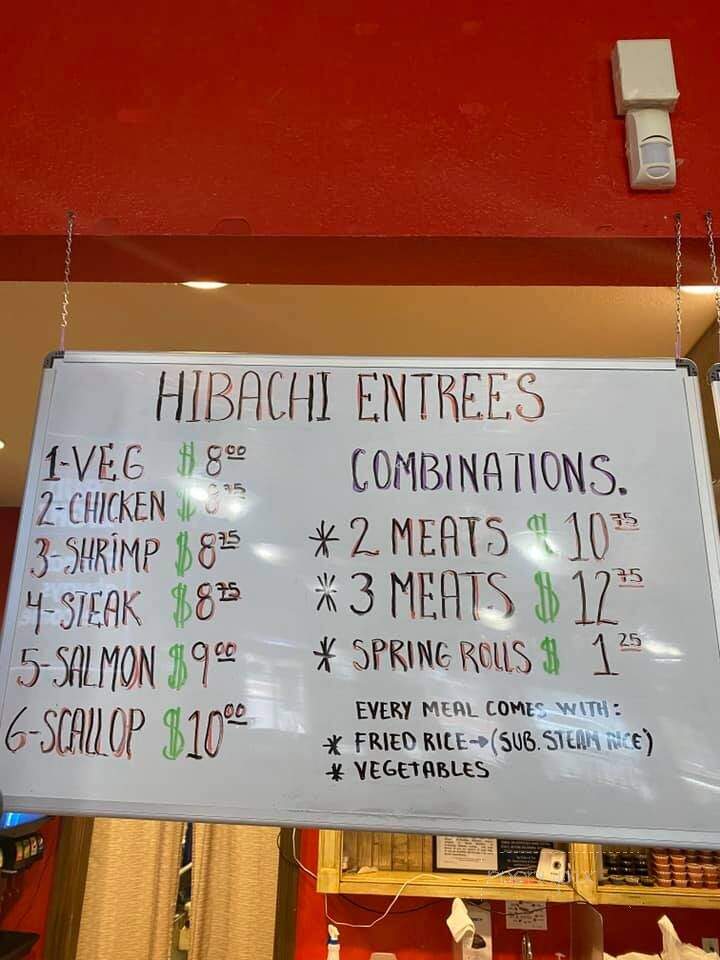 HIBACHI ENTREES
1-VEG $8.00
2-CHICKEN $8.75
3-SHRIMP $8.75
4-STEAK $8.75
5-SALMON $9.00
6-SCALLOP $10.00
COMBINATIONS.
* 2 MEATS $10.75
* 3 MEATS $12.75
* SPRING ROLLS $1.25
EVERY MEAL COMES WITH:
* FRIED RICE→(SUB. STEAM RICE)
* VEGETABLES